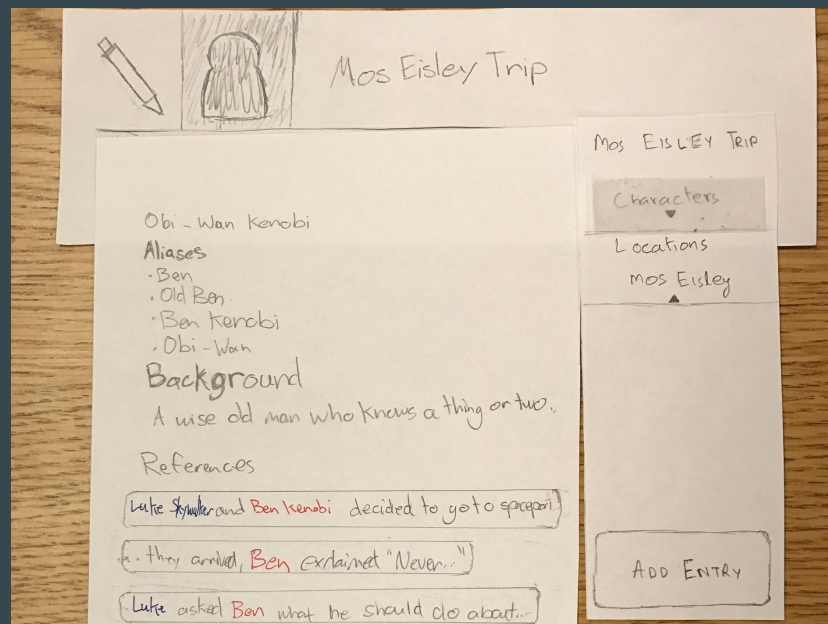 Mos Eisley Trip
Obi-Wan Kenobi
Aliases
· Ben
· Old Ben
· Ben Kenobi
· Obi-Wan
Background
A wise old man who knows a thing or two..
References
Luke Skywalker and Ben Kenobi decided to go to spaceport.
they arrived, Ben exclaimed "Never..."
Luke asked Ben what he should do about...
MOS EISLEY TRIP
Characters
Locations
Mos Eisley
ADD ENTRY